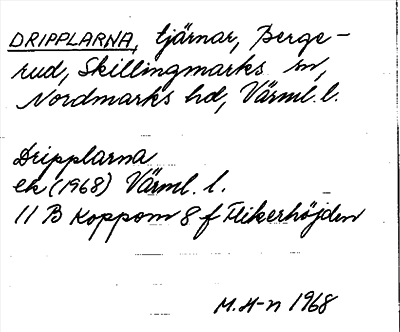 DRIPPLARNA, tjärnar, Berge-
rud, Skillingmarks sn,
Nordmarks hd, Värml. l.
Dripplarna
ek (1968) Värml. l.
11 B Koppom 8 f Flikerhöjden
M. H-n 1968